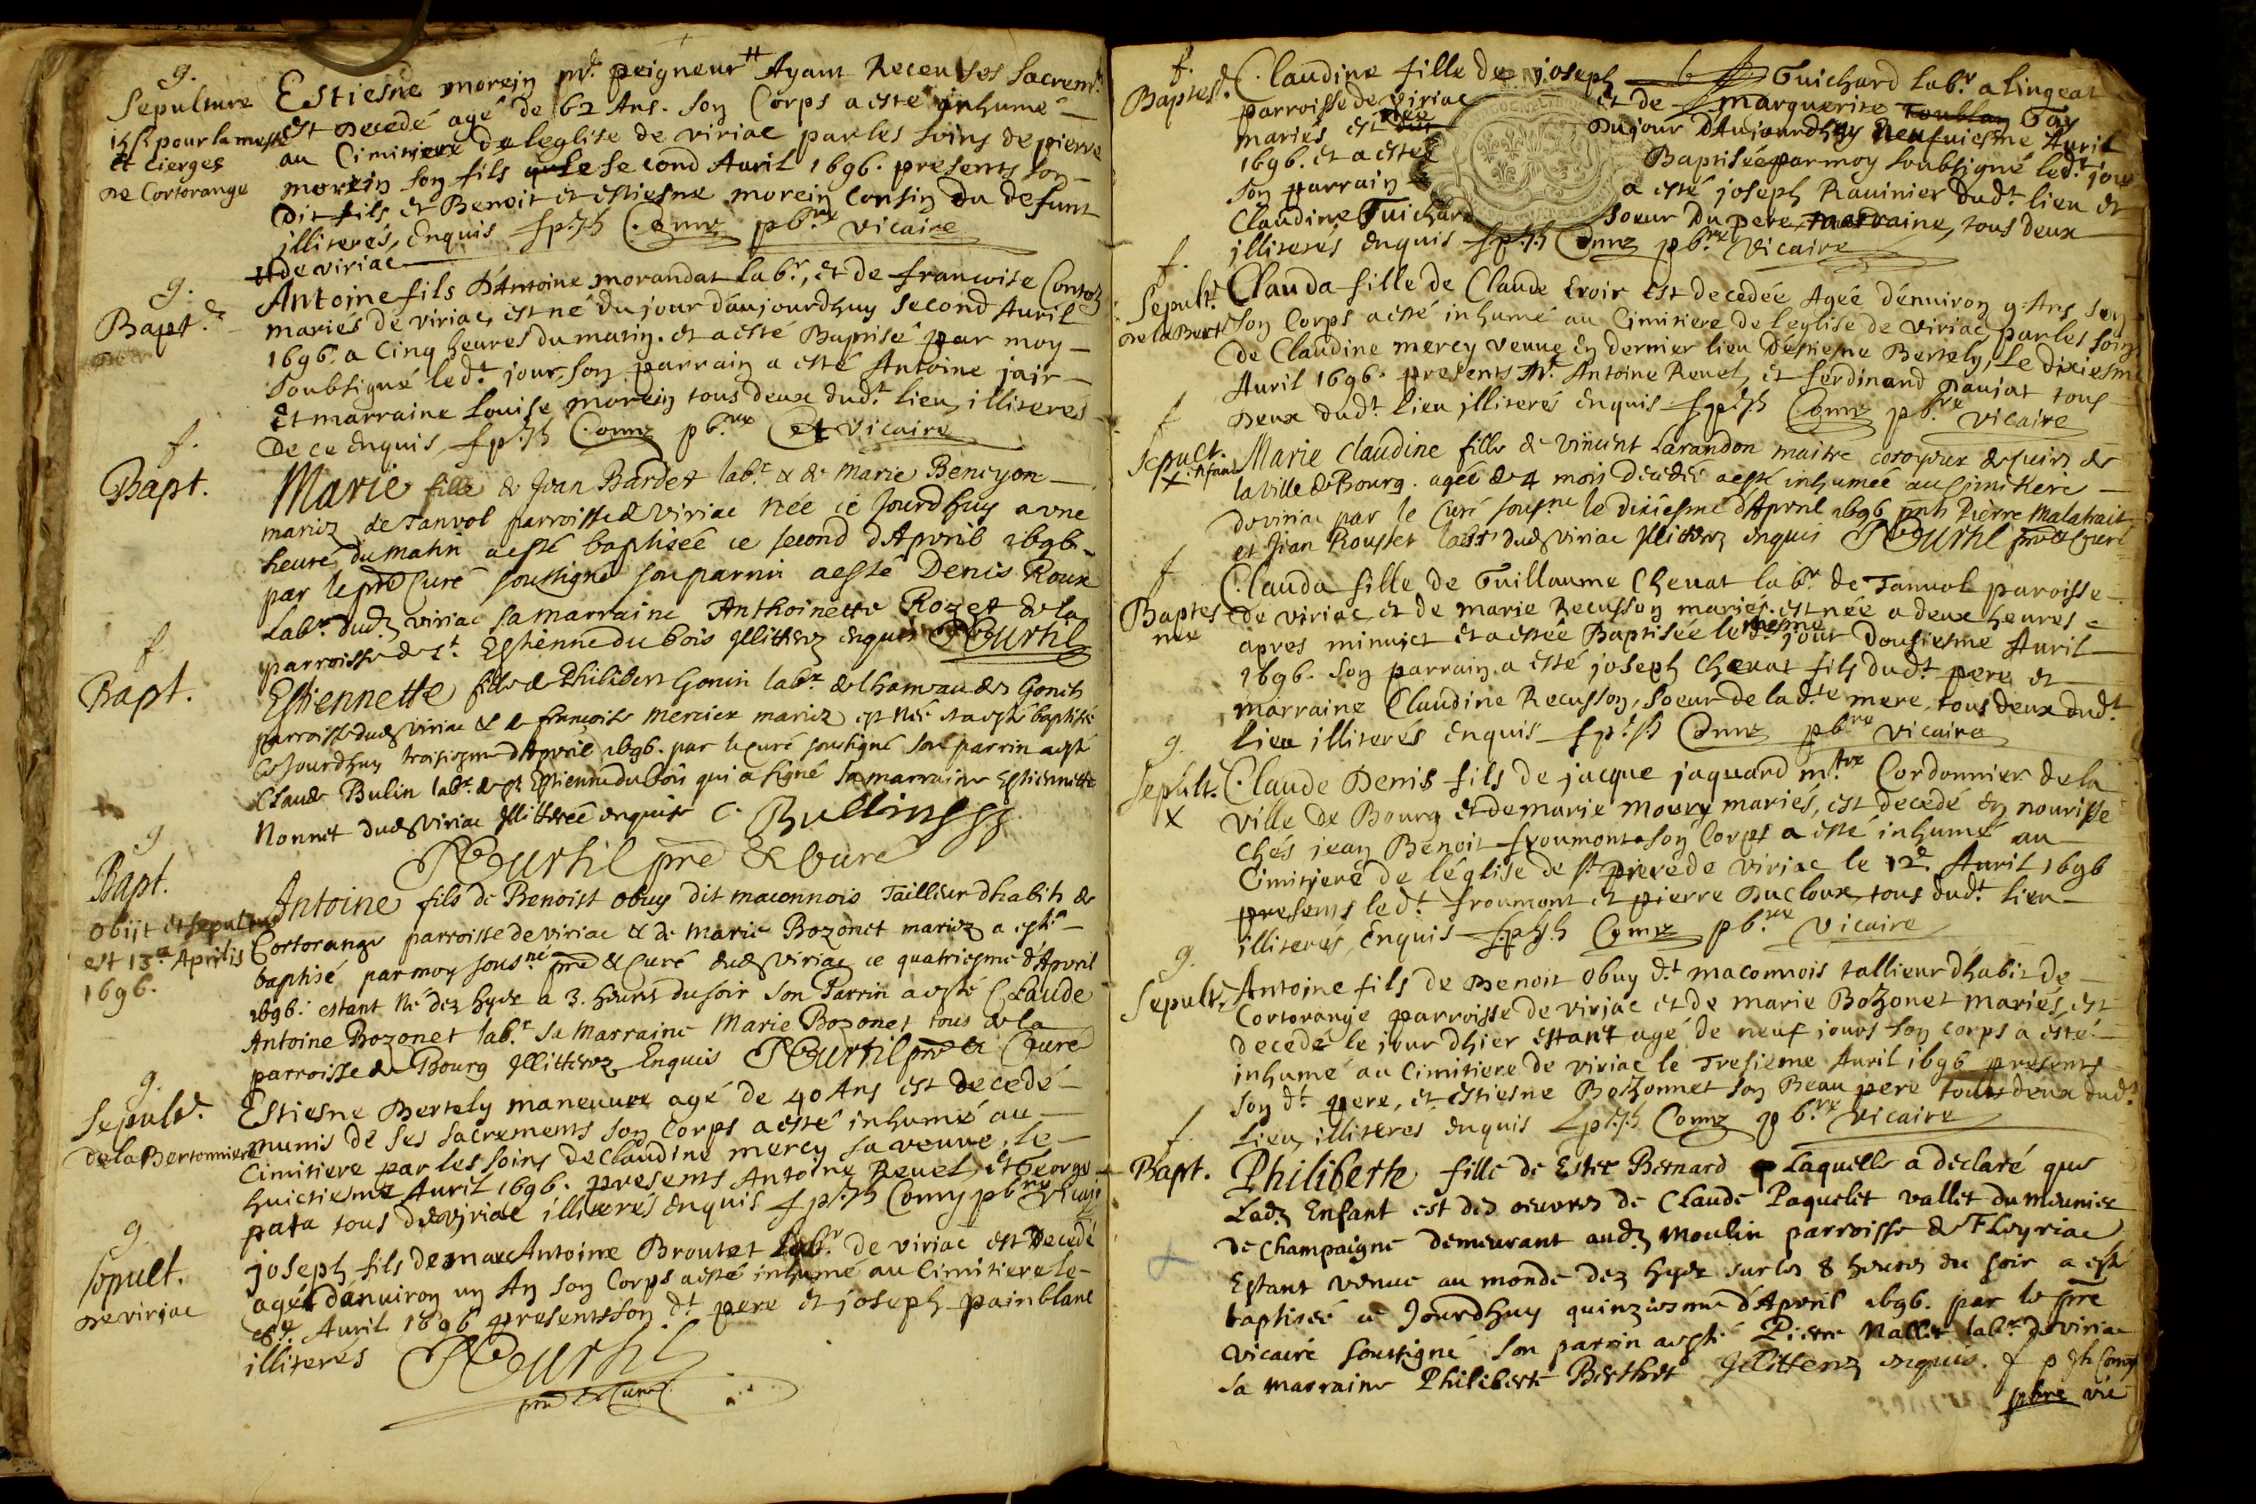 g.
Sepulture
15 s. pour la messe
et cierges
De Cortorange
Estiesne morein md. peigneur # Ayant Receu ses sacremts.
est Decedé agé de 62 Ans. son Corps a esté inhumé
au Cimitiere de leglise de viriac par les soins de pierre
morein son fils le second Auril 1696. presents son
Dit fils et Benoit et estiesne morein Cousin du defunt
illiterés, enquis pbre. vicaire
# de viriac
g.
Bapt.
Antoine fils D'Antoine morandat labr, et de francoise
mariés de viriac, est né du jour d'aujourdhuy second Auril
1696. a Cinq heures du matin. et a esté Baptisé par moy
soubsigné ledt. jour, son parrain a esté Antoine jair
Et marraine Louise morein tous deux dudt. lieu, illiteres
De ce enquis, pbre. et vicaire
f.
Bapt.
Marie fille de Jean Bardet labr. & de Marie Bencyon
mariez de Tanvol parroisse de viriac née ce Jourdhuy a vne
heure du matin a esté baptisée ce second d'Apvril 1696.
par le pre Curé soussigné son parrin a esté Denis Roux
Labr. dud viriac sa marraine Anthoinette Rozet de la
parroisse de St. Estienne du bois Jllitterez enquis
f
Bapt.
Estiennette fille de Philibert Gonin labr. de lhameau des Gonins
parroisse dud viriac & de françoise Mercier mariez est Née et a esté baptisée
Ce Jourdhuy troisiesme d'Apvril 1696. par le curé soussigné son parrin a esté
Claude Bulin labr. de St Estienne du bois qui a signé sa marraine Estiennette
Nonnet dud viriac Jllitterée enquise C. Bullin
pre & Curé
g
Bapt.
Obijt et sepultus
est 13a Aprilis
1696.
Antoine fils de Benoist Obuy dit maconnois Tailleur dhabits de
Cortorange parroisse de viriac & de Marie Bozonet mariez a esté
baptisé par moy sousné. pre & Curé dud viriac ce quatriesme d'Apvril
1696. estant Né dez hyer a 3. heures du soir son Parrin a esté Claude
Antoine Bozonet labr. sa Marraine Marie Bozonet tous de la
parroisse de Bourg Jllitterez Enquis pre & Curé
g.
Sepult.
de la Bertonniere
Estiesne Bertely maneuure agé de 40 Ans est Decedé
munis de ses sacrements son Corps a esté inhumé au
Cimitiere par les soins de Claudine mercy sa veuue, le
huictiesme Auril 1696. presents Antoine Reuel, et George
pata tous de viriac illiterés enquis pbre
g.
Sepult.
De viriac
joseph fils de marc Antoine Broutet labr. de viriac est Decedé
agé d'anuiron un An son Corps a esté inhumé au Cimitiere le
8e. Auril 1696 presents son dt. pere et joseph painblanc
illiterés
pre & Curé
f.
Baptes.
Claudine fille de joseph Guichard labr. a lingeat
parroisse de viriac et de marguerite Gay
mariés est née du jour d'Aujourdhuy neufuiesme Auril
1696. et a esté Baptisée par moy soubsigné ledt. jour
son parrain a esté joseph Rauinier dudt. lieu et
Claudine Guichard soeur du pere marraine, tous deux
illiterés enquis pbre vicaire
f.
Sepult.
De la Bert
Clauda fille de Claude Eroir est decedée Agée d'enuiron 9 Ans son
son Corps a esté inhumé au Cimitiere de leglise de viriac par les soins
de Claudine mercy veuue en dernier lieu Destiesne Bertely, Le dixiesme
Auril 1696. presents Mr. Antoine Reuel, et ferdinand paujat tous
Deux dudt. lieu illiterés enquis pbre vicaire
f
Sepult.
x
Marie Claudine fille de vincent Larandon maitre coroyeur de cuirs de
la ville de Bourg. agée de 4 mois décédée a esté inhumée au Cimitiere
de viriac par le Curé sousné le dixiesme d'Apvril 1696 pnts Pierre Malatrait
et Jean Rousset labrs dud viriac Jllitterez enquis pre & Curé
f
Baptes
mex
Clauda fille de Guillaume Cheuat labr. de Tanuol paroisse
de viriac et de marie Recusson mariés. est née a deux heures
apres minuict et a estée Baptisée le mesme jour Dousiesme Auril
1696. son parrain a esté joseph Cheuat fils dudt. pere et
marraine Claudine Recusson, soeur de ladte mere, tous deux dudt.
lieu illiterés enquis pbre vicaire
g.
Sepult.
x
Claude Denis fils de jacque jaquard mtre Cordonnier de la
ville de Bourg et de marie Mourx mariés, est decedé en nourisse
Chés jean Benoit froumont son Corps a esté inhumé au
Cimitiere de léglise de st. piere de viriac le 12e. Auril 1696
presents ledt. froumont et pierre Ducloux, tous dudt. lieu
illiterés, Enquis pbre vicaire
g.
Sepult.
Antoine fils de Benoit Obuy dt. maconnois tallieur dhabit de
Cortorange parroisse de viriac et de marie Bozonet mariés, est
decedé le jour dhier estant agé de neuf jours son corps a esté
inhumé au Cimitiere de viriac le Tresieme Auril 1696 presents
son dt. pere, et estiesne Bozonnet son Beau pere tous deux dudt.
Lieu, illiteres enquis pbre vicaire
f.
Bapt.
Philiberte fille de Ester Bernard Laquelle a declaré que
Ladz Enfant est des oeuvres de Claude Paquelet vallet du meunier
De Champaigne demeurant audz Moulin parroisse de Fleyriac
Estant venue au monde dez hyer sur les 8 heures du soir a esté
baptisée ce Jourdhuy quinziesme d'Apvril 1696. par le pre
vicaire soussigné son parrin a esté Pierre Nallet labr. de viriac
sa marraine Philiberte Berthet Jllitterez enquis.
pbre vic